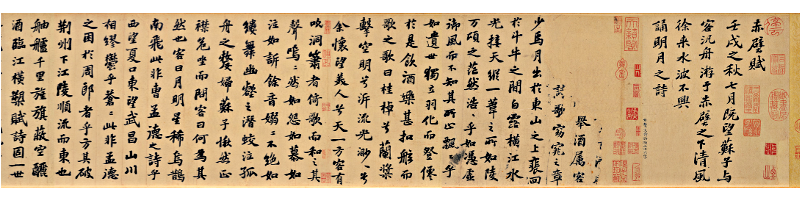 赤壁賦
壬戌之秋七月既望蘇子与
客汎舟游于赤壁之下清風
徐来水波不興
誦明月之詩
舉酒属客
歌窈窕之章
少焉月出於東山之上裴回
於斗牛之間白露橫江水
光接天縱一葦之所如陵
万頃之茫然浩乎如憑虛
御風而不知其所止飄乎
如遺世獨立羽化而登僊
於是飲酒樂甚扣舷而
歌之歌曰桂棹兮蘭槳
擊空明兮泝流光渺兮
余懷望美人兮天一方客有
吹洞簫者倚歌而和之其
聲嗚々然如怨如慕如
泣如訴餘音嫋々不絕如
縷舞幽壑之潛蛟泣孤
舟之嫠婦蘇子愀然正
襟危坐而問客曰何為其
然也客曰月明星稀烏鵲
南飛此非曹孟德之詩乎
西望夏口東望武昌山川
相繆鬱乎蒼々此非孟德
之困於周郎者乎方其破
荊州下江陵順流而東也
舳艫千里旌旗蔽空釃
酒臨江橫槊賦詩固一世